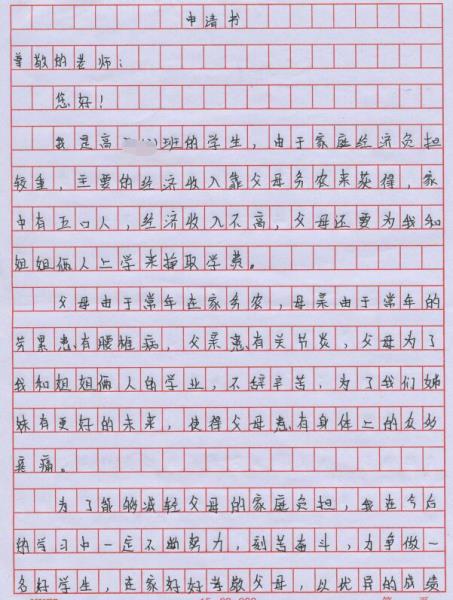 申请书
尊敬的老师：
您好！
我是高班的学生，由于家庭经济负担
较重，主要的经济收入靠父母务农来获得，家
中有五口人，经济收入不高，父母还要为我和
姐姐俩人上学来挣取学费。
父母由于常年在家务农，母亲由于常年的
劳累患有腰椎病，父亲患有关节炎，父母为了
我和姐姐俩人的学业，不辞辛苦，为了我们姊
妹有更好的未来，使得父母患有身体上的众多
疾痛。
为了能够减轻父母的家庭负担，我在今后
的学习中一定不断努力，刻苦奋斗，力争做一
名好学生，在家好好孝敬父母，以优异的成绩